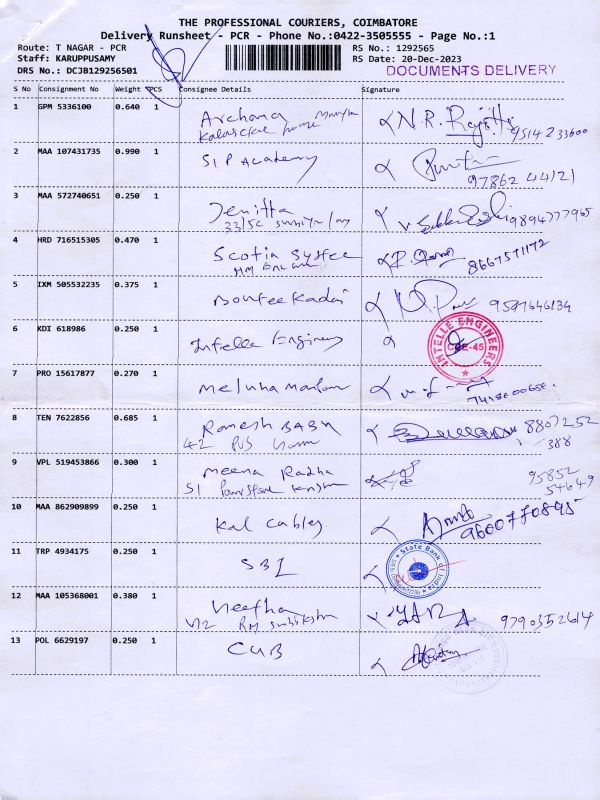 THE PROFESSIONAL COURIERS, COIMBATORE
Delivery Runsheet - PCR - Phone No.:0422-3505555 - Page No.:1
Route: T NAGAR - PCR
RS No.: 1292565
Staff: KARUPPUSAMY
RS Date: 20-Dec-2023
DRS No.: DCJB129256501
DOCUMENTS DELIVERY
S No Consignment No Weight PCS Consignee Details Signature
1 GPM 5336100 0.640 1 Archana
N.R.
9514233600
2 MAA 107431735 0.990 1 SIP Academy
97862 44121
3 MAA 572740651 0.250 1 Jenitta
9894777965
4 HRD 716515305 0.470 1 Scotia
8667571172
5 IXM 505532235 0.375 1
6 KDI 618986 0.250 1 Intelle Engineers
INTELLE ENGINEERS
CBE-45
7 PRO 15617877 0.270 1 Meluha
8 TEN 7622856 0.685 1 Ramesh BABU
8807252
388
42 PUS
9 VPL 519453866 0.300 1 Meena Radha
95852
57649
51
10 MAA 862909899 0.250 1 Kal Cables
9600770895
11 TRP 4934175 0.250 1 SBI
State Bank of India
12 MAA 105368001 0.380 1 Neetha
9790352614
13 POL 6629197 0.250 1 CUB